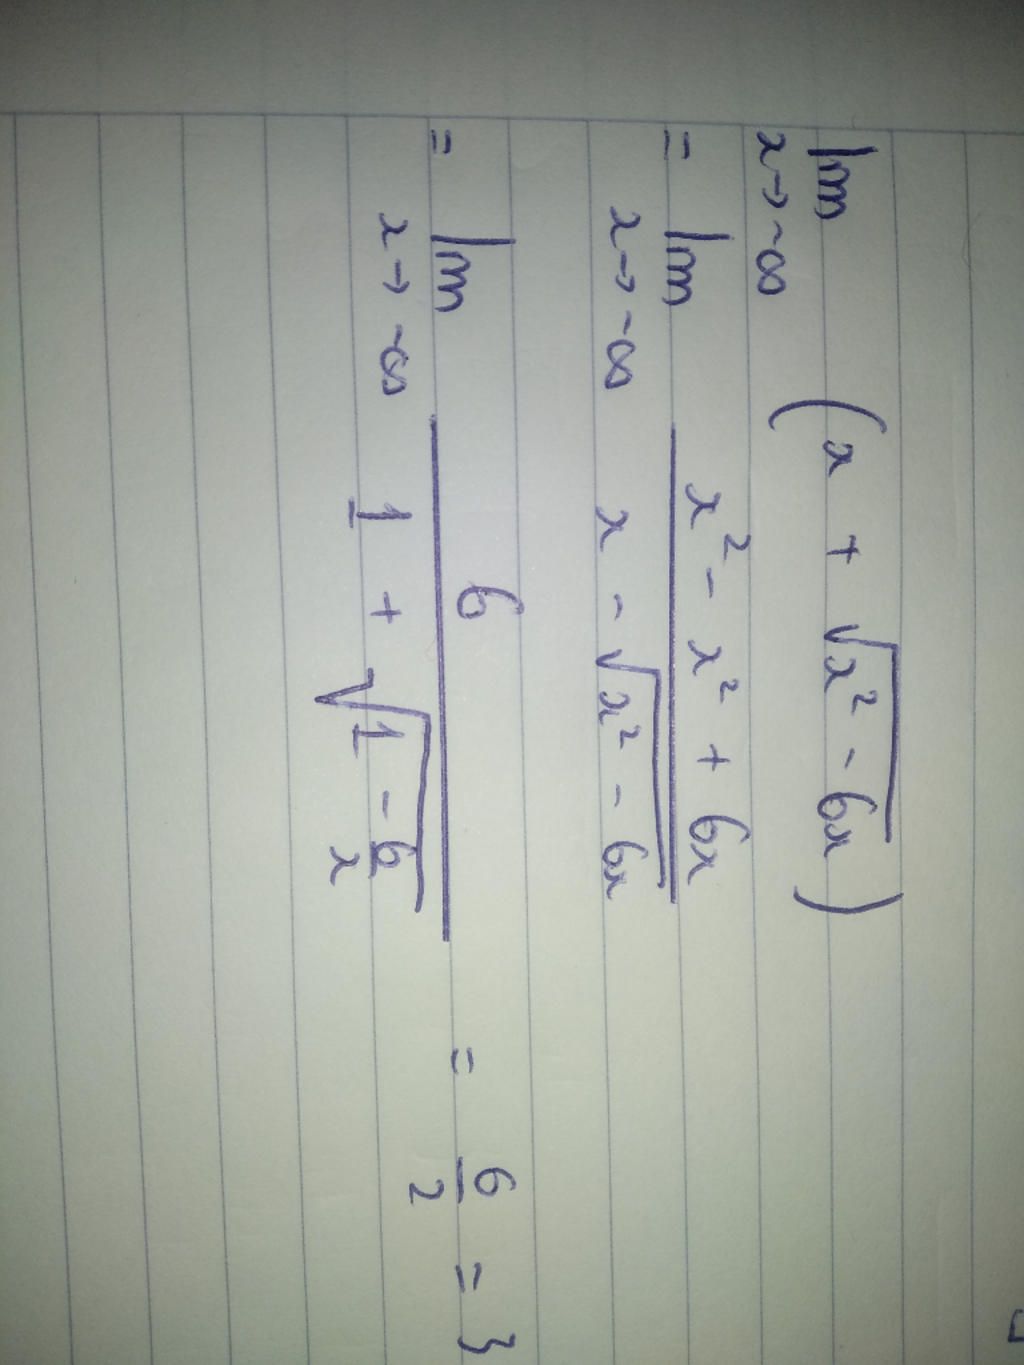 lim x→-∞ (x + √(x² - 6x))
= lim x→-∞ (x² - x² + 6x)/(x - √(x² - 6x))
= lim x→-∞ 6/(1 + √(1 - 6/x)) = 6/2 = 3